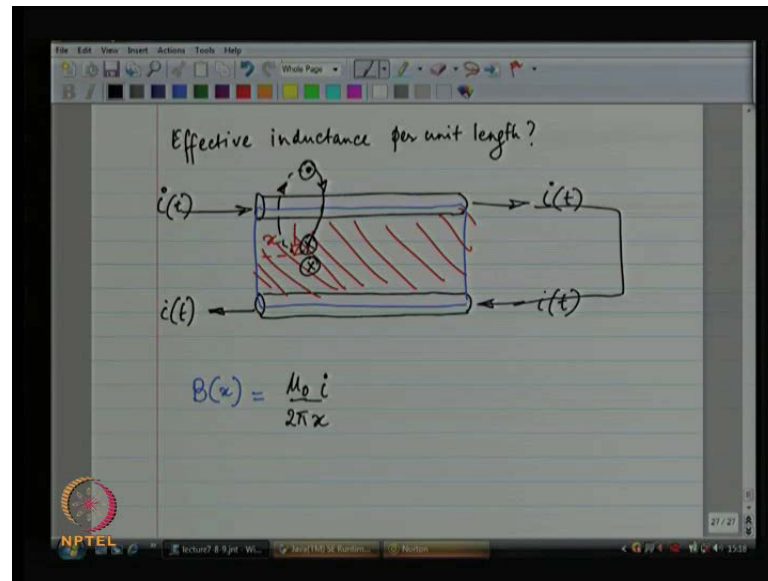 File Edit View Insert Actions Tools Help
Whole Page
B
Effective inductance per unit length?
i(t) i(t)
x
i(t) i(t)
B(x) = μ₀ i / 2πx
27 / 27
NPTEL
lecture7-8-9.jnt - Wi... Java(TM) SE Runtim... Norton 15:18